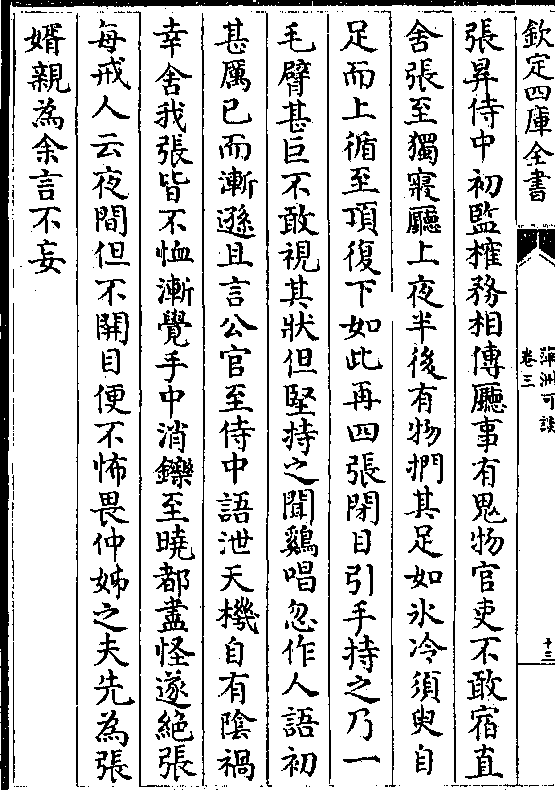 欽定四庫全書
萍洲可談
卷三
十三
張昇侍中初監榷務相傳廳事有鬼物官吏不敢宿直
舍張至獨寢廳上夜半後有物捫其足如氷冷須臾自
足而上循至頂復下如此再四張閉目引手持之乃一
毛臂甚巨不敢視其狀但堅持之聞鷄唱忽作人語初
甚厲已而漸遜且言公官至侍中語泄天機自有陰禍
幸舍我張皆不恤漸覺手中消鑠至曉都盡怪遂絶張
每戒人云夜間但不開目便不怖畏仲姊之夫先為張
婿親為余言不妄